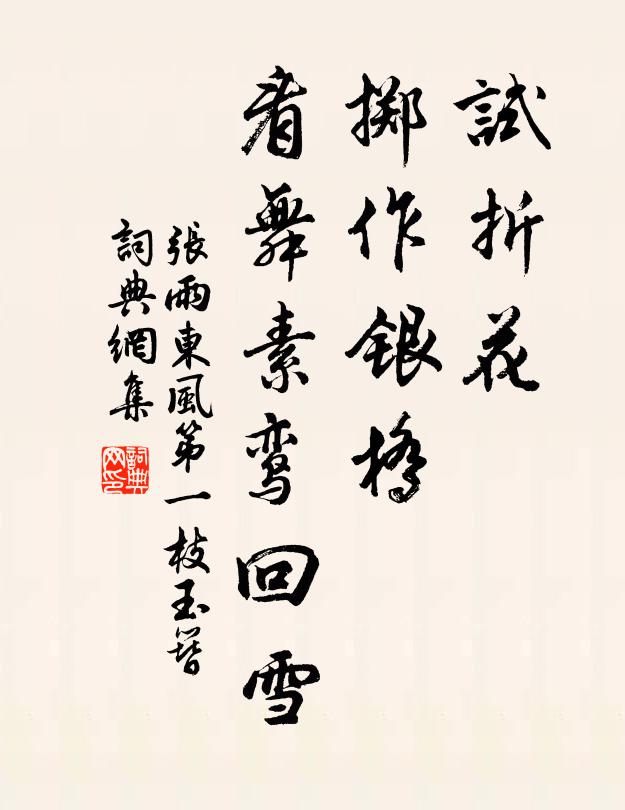 試折花
擲作銀橋
看舞素鸾回雪
張雨東風第一枝玉簪
詞典網集
詞典网印